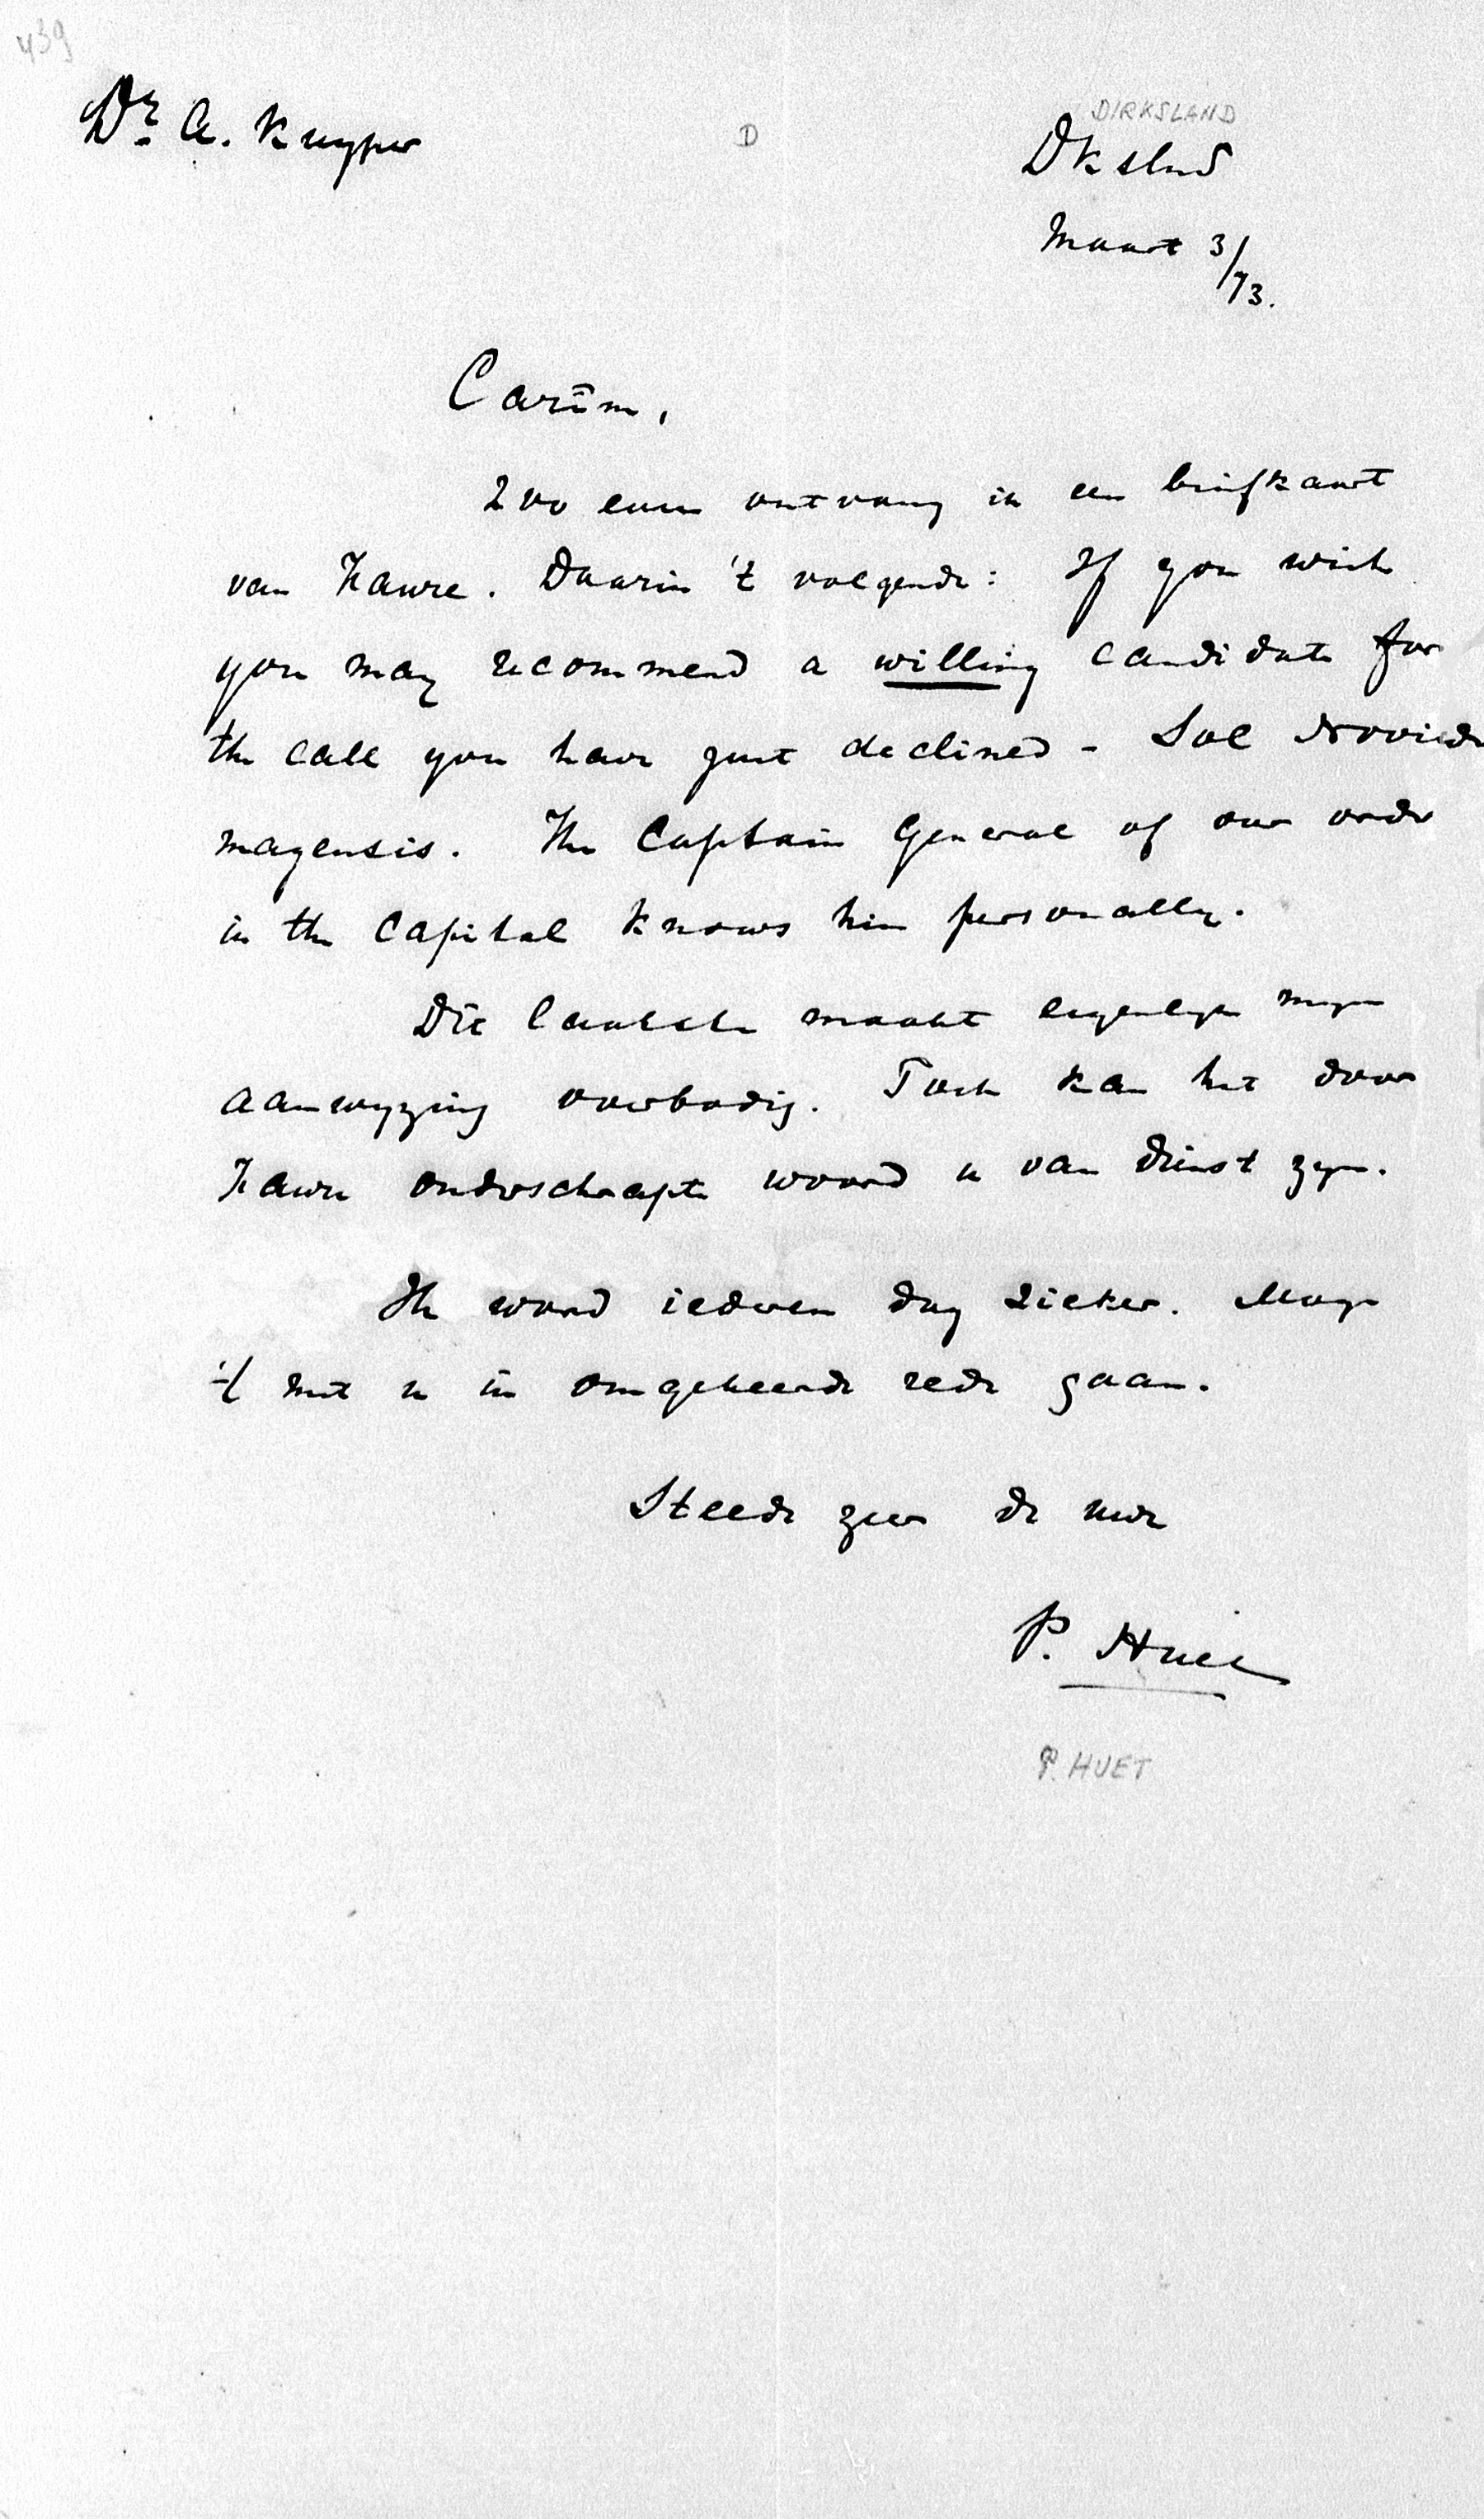 439
Dr. A. Kuyper
D
DIRKSLAND
Dkslnd
Maart 3/73.
Carīm,
Zoo even ontvang ik een briefkaart
van . Daarin 't volgende: If you wish
you may recommend a willing candidate for
the call you have just declined - Sol Noviom
magensis. The Captain General of our order
in the Capital knows him personally.
Dit laatste maakt eigenlyk myn
aanwyzing overbodig. Toch kan het door
onderschrapte woord u van dienst zyn.
Ik word iederen dag zieker. Moge
't met u in omgekeerde rede gaan.
Steeds zeer de uwe
P. Huet
P. HUET